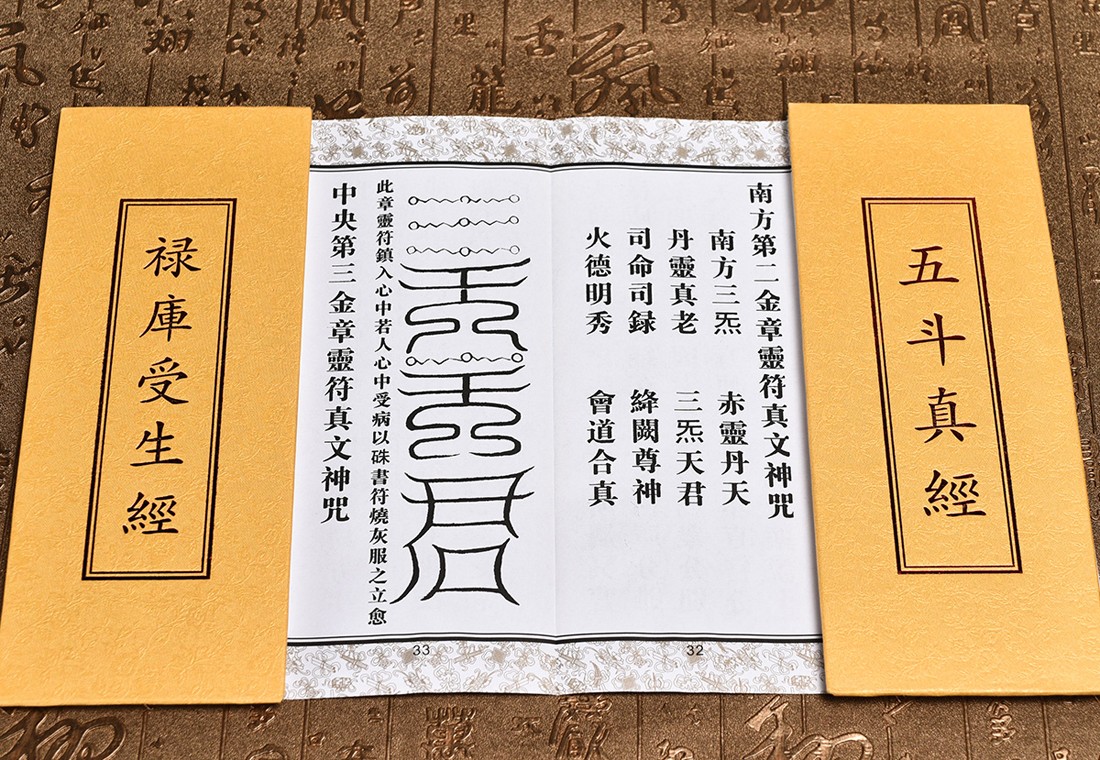 五斗真經
南方第二金章靈符真文神咒
南方三炁 赤靈丹天
丹靈真老 三炁天君
司命司録 絳闕尊神
火德明秀 會道合真
32
此章靈符鎮入心中若人心中受病以硃書符燒灰服之立愈
中央第三金章靈符真文神咒
33
禄庫受生經